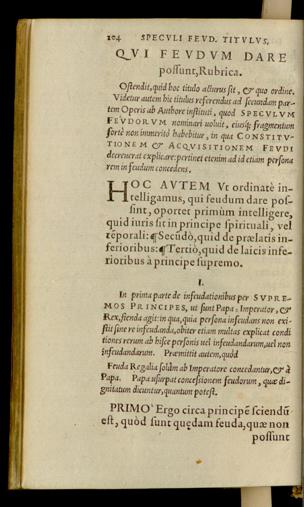 104 SPECULI FEUD. TITVLVS,
QVI FEVDVM DARE
possunt, Rubrica.
Ostendit, quid hoc titulo acturus sit, & quo ordine.
Videtur autem hic titulus referendus ad secundam par-
tem Operis ab Authore instituti, quod SPECVLVM
FEVDORVM nominari uoluit, eiusq; fragmentum
fortè non immeritò habebitur, in qua CONSTITV-
TIONEM & ACQVISITIONEM FEVDI
decreuerat explicare: pertinet etenim ad id etiam persona
rem in feudum concedens.
HOC AVTEM Vt ordinatè in-
telligamus, qui feudum dare pos-
sint, oportet primùm intelligere,
quid iuris sit in principe spirituali, vel
tẽporali: ¶ Secũdò, quid de prælatis in-
ferioribus: ¶ Tertiò, quid de laicis infe-
rioribus à principe supremo.
I.
In prima parte de infeudationibus per SVPRE-
MOS PRINCIPES, ut sunt Papa, Imperator, &
Rex, fienda agit: in qua, quia persona infeudans non exi-
stit sine re infeudanda, obiter etiam multas explicat condi
tiones rerum ab hisce personis uel infeudandarum, uel non
infeudandarum. Præmittit autem, quòd
Feuda Regalia solùm ab Imperatore concedantur, & à
Papa. Papa usurpat concessionem feudorum, quæ di-
gnitatum dicuntur, quantum potest.
PRIMO Ergo circa principẽ sciendũ
est, quòd sunt quędam feuda, quæ non
possunt